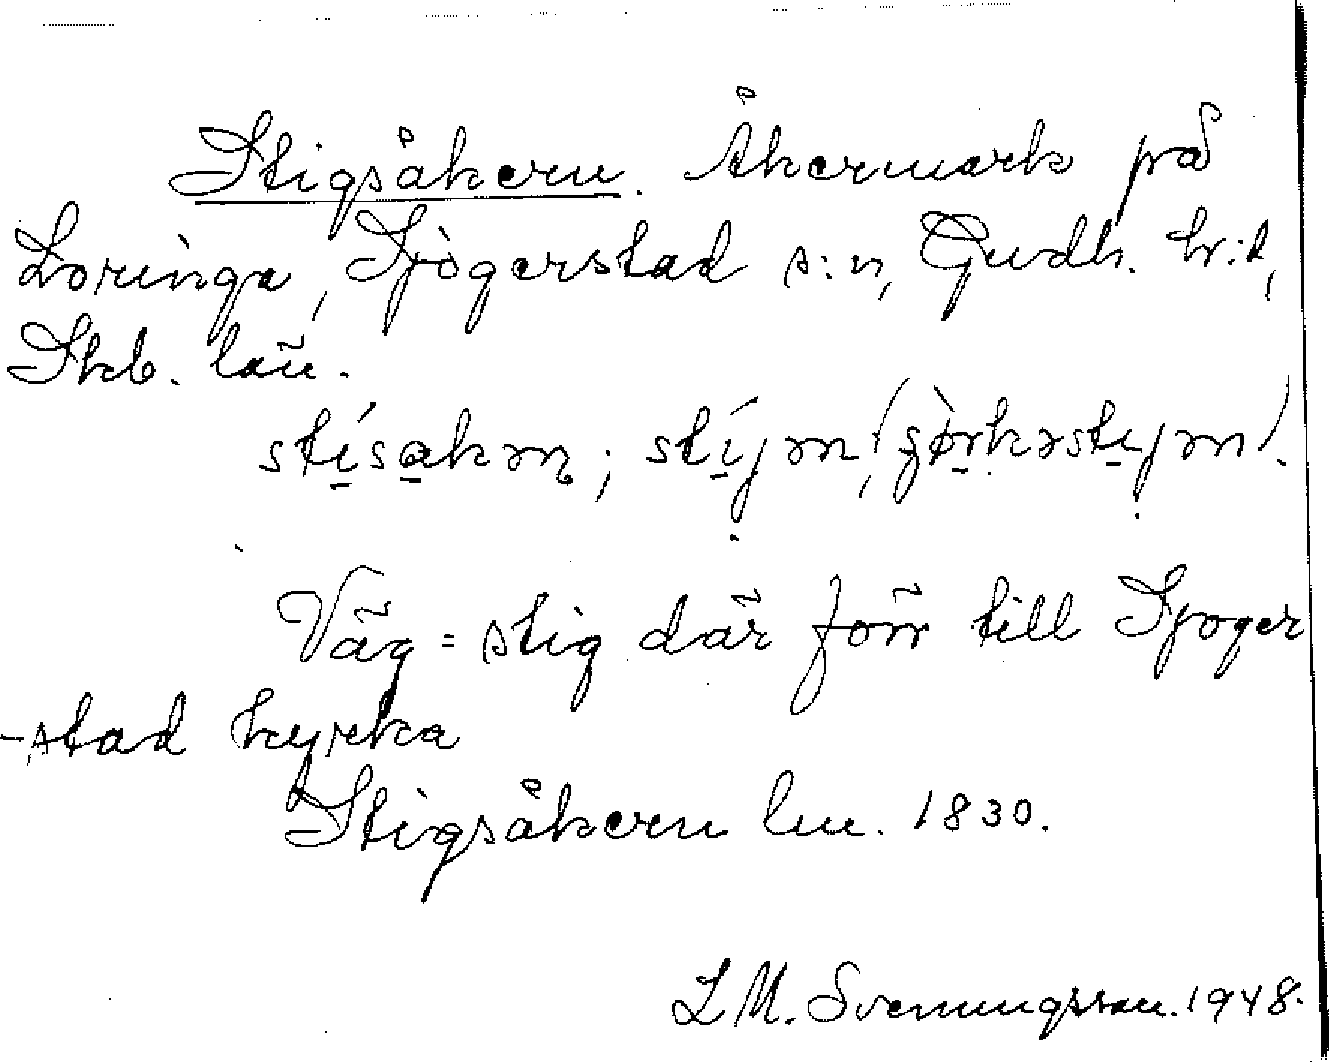 Stigsåkern. Åkermark på
Loringa, Sjögerstad s:n, Gudh. hr:d,
Skb. län.
stísakən; stíjən (şørkəstijən).
Väg = stig där förr till Sjöger
-stad kyrka
Stigsåkern lm. 1830.
L M. Svenungsson. 1948.